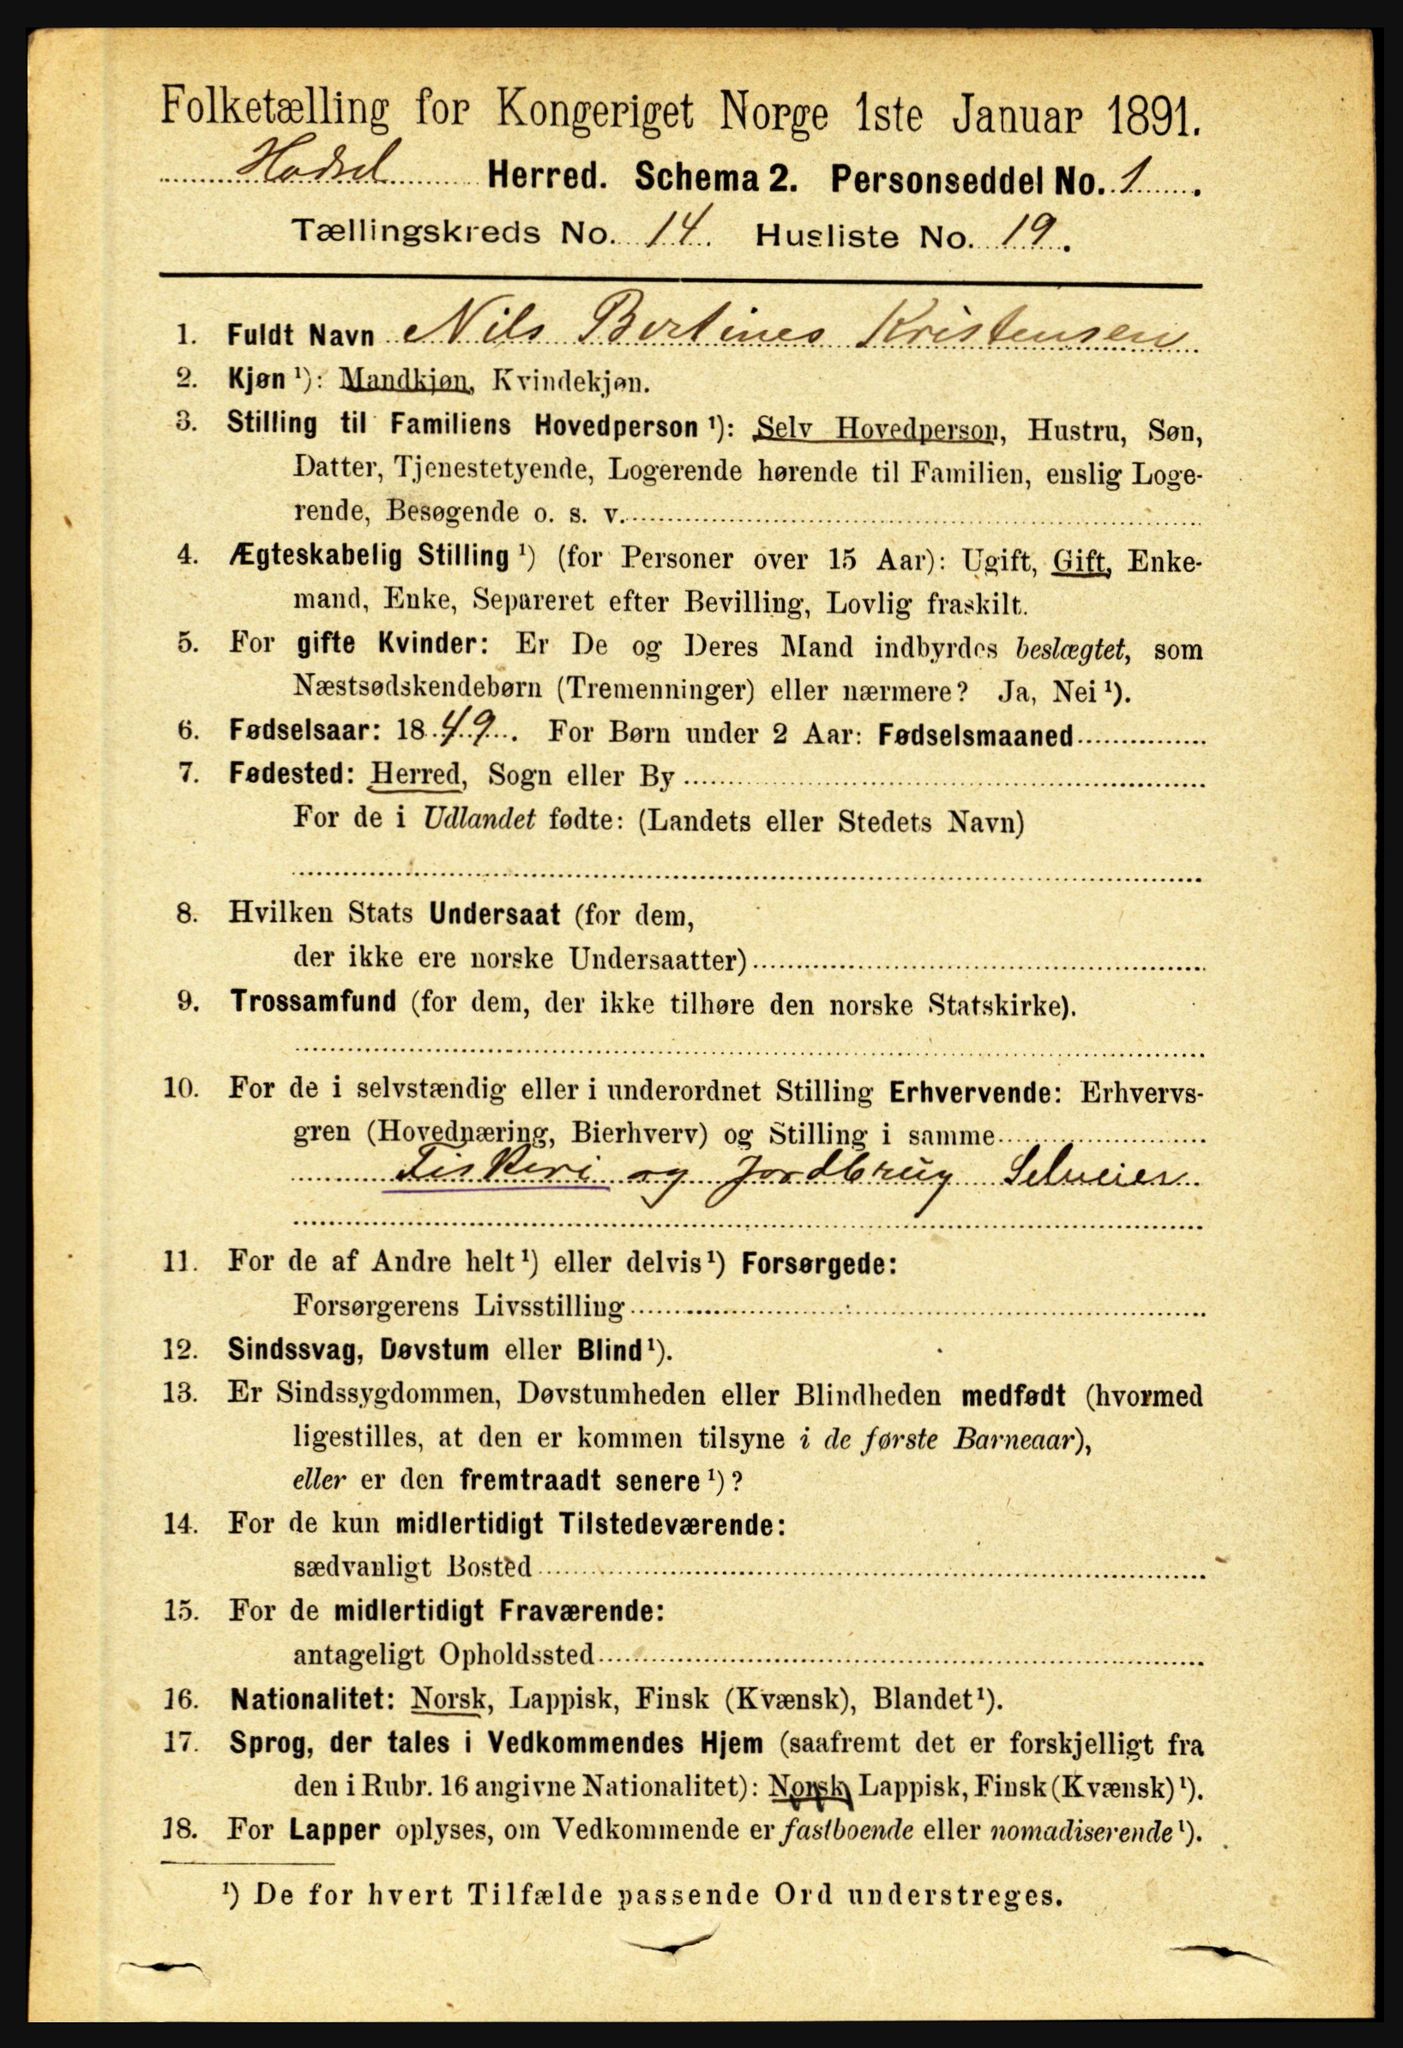 Folketælling for Kongeriget Norge 1ste Januar 1891.
Hadsel Herred. Schema 2. Personseddel No. 1.
Tællingskreds No. 14. Husliste No. 19.
1. Fuldt Navn Nils Bertines Kristensen
2. Kjøn ¹): Mandkjøn, Kvindekjøn.
3. Stilling til Familiens Hovedperson ¹): Selv Hovedperson, Hustru, Søn,
Datter, Tjenestetyende, Logerende hørende til Familien, enslig Loge-
rende, Besøgende o. s. v.
4. Ægteskabelig Stilling ¹) (for Personer over 15 Aar): Ugift, Gift, Enke-
mand, Enke, Separeret efter Bevilling, Lovlig fraskilt.
5. For gifte Kvinder: Er De og Deres Mand indbyrdes beslægtet, som
Næstsødskendebørn (Tremenninger) eller nærmere? Ja, Nei ¹).
6. Fødselsaar: 1849. For Børn under 2 Aar: Fødselsmaaned
7. Fødested: Herred, Sogn eller By
For de i Udlandet fødte: (Landets eller Stedets Navn)
8. Hvilken Stats Undersaat (for dem,
der ikke ere norske Undersaatter)
9. Trossamfund (for dem, der ikke tilhøre den norske Statskirke).
10. For de i selvstændig eller i underordnet Stilling Erhvervende: Erhvervs-
gren (Hovednæring, Bierhverv) og Stilling i samme
Fiskeri og Jordbrug Selveier
11. For de af Andre helt ¹) eller delvis ¹) Forsørgede:
Forsørgerens Livsstilling
12. Sindssvag, Døvstum eller Blind ¹).
13. Er Sindssygdommen, Døvstumheden eller Blindheden medfødt (hvormed
ligestilles, at den er kommen tilsyne i de første Barneaar),
eller er den fremtraadt senere ¹)?
14. For de kun midlertidigt Tilstedeværende:
sædvanligt Bosted
15. For de midlertidigt Fraværende:
antageligt Opholdssted
16. Nationalitet: Norsk, Lappisk, Finsk (Kvænsk), Blandet ¹).
17. Sprog, der tales i Vedkommendes Hjem (saafremt det er forskjelligt fra
den i Rubr. 16 angivne Nationalitet): Norsk, Lappisk, Finsk (Kvænsk) ¹).
18. For Lapper oplyses, om Vedkommende er fastboende eller nomadiserende ¹).
¹) De for hvert Tilfælde passende Ord understreges.